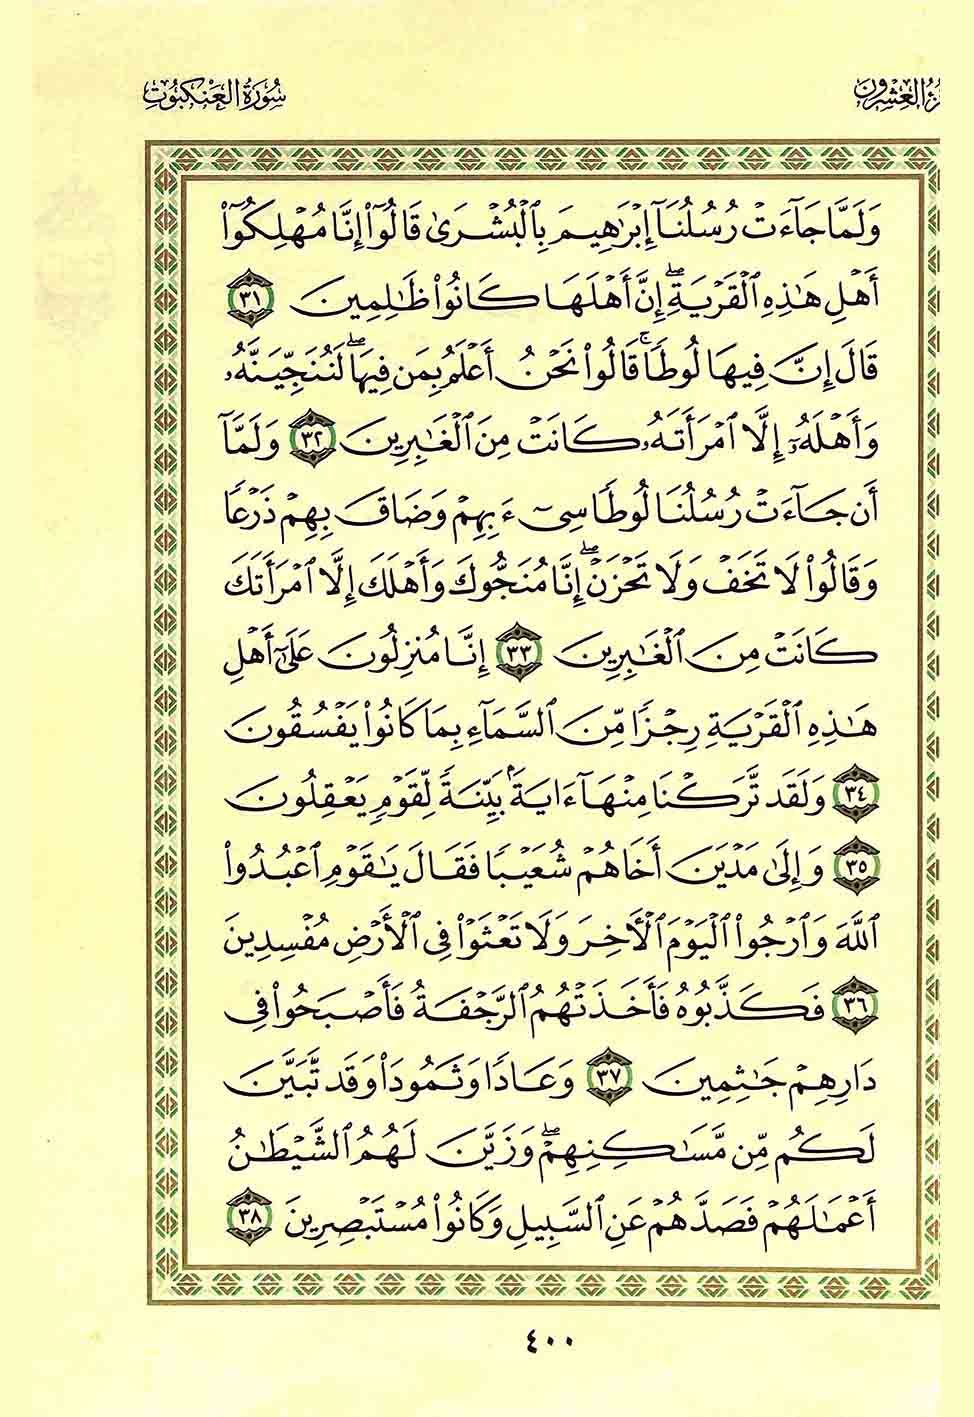 سُورَةُ الْعَنكَبُوتِ
الْعِشْرُونَ
وَلَمَّا جَآءَتْ رُسُلُنَآ إِبْرَٰهِيمَ بِٱلْبُشْرَىٰ قَالُوٓا۟ إِنَّا مُهْلِكُوٓا۟
أَهْلِ هَٰذِهِ ٱلْقَرْيَةِ ۖ إِنَّ أَهْلَهَا كَانُوا۟ ظَٰلِمِينَ ٣١
قَالَ إِنَّ فِيهَا لُوطًا ۚ قَالُوا۟ نَحْنُ أَعْلَمُ بِمَن فِيهَا ۖ لَنُنَجِّيَنَّهُۥ
وَأَهْلَهُۥٓ إِلَّا ٱمْرَأَتَهُۥ كَانَتْ مِنَ ٱلْغَٰبِرِينَ ٣٢ وَلَمَّآ
أَن جَآءَتْ رُسُلُنَا لُوطًا سِىٓءَ بِهِمْ وَضَاقَ بِهِمْ ذَرْعًا
وَقَالُوا۟ لَا تَخَفْ وَلَا تَحْزَنْ ۖ إِنَّا مُنَجُّوكَ وَأَهْلَكَ إِلَّا ٱمْرَأَتَكَ
كَانَتْ مِنَ ٱلْغَٰبِرِينَ ٣٣ إِنَّا مُنزِلُونَ عَلَىٰٓ أَهْلِ
هَٰذِهِ ٱلْقَرْيَةِ رِجْزًا مِّنَ ٱلسَّمَآءِ بِمَا كَانُوا۟ يَفْسُقُونَ
٣٤ وَلَقَد تَّرَكْنَا مِنْهَآ ءَايَةًۢ بَيِّنَةً لِّقَوْمٍ يَعْقِلُونَ
٣٥ وَإِلَىٰ مَدْيَنَ أَخَاهُمْ شُعَيْبًا فَقَالَ يَٰقَوْمِ ٱعْبُدُوا۟
ٱللَّهَ وَٱرْجُوا۟ ٱلْيَوْمَ ٱلْأٓخِرَ وَلَا تَعْثَوْا۟ فِى ٱلْأَرْضِ مُفْسِدِينَ
٣٦ فَكَذَّبُوهُ فَأَخَذَتْهُمُ ٱلرَّجْفَةُ فَأَصْبَحُوا۟ فِى
دَارِهِمْ جَٰثِمِينَ ٣٧ وَعَادًا وَثَمُودَا۟ وَقَد تَّبَيَّنَ
لَكُم مِّن مَّسَٰكِنِهِمْ ۖ وَزَيَّنَ لَهُمُ ٱلشَّيْطَٰنُ
أَعْمَٰلَهُمْ فَصَدَّهُمْ عَنِ ٱلسَّبِيلِ وَكَانُوا۟ مُسْتَبْصِرِينَ ٣٨
٤٠٠